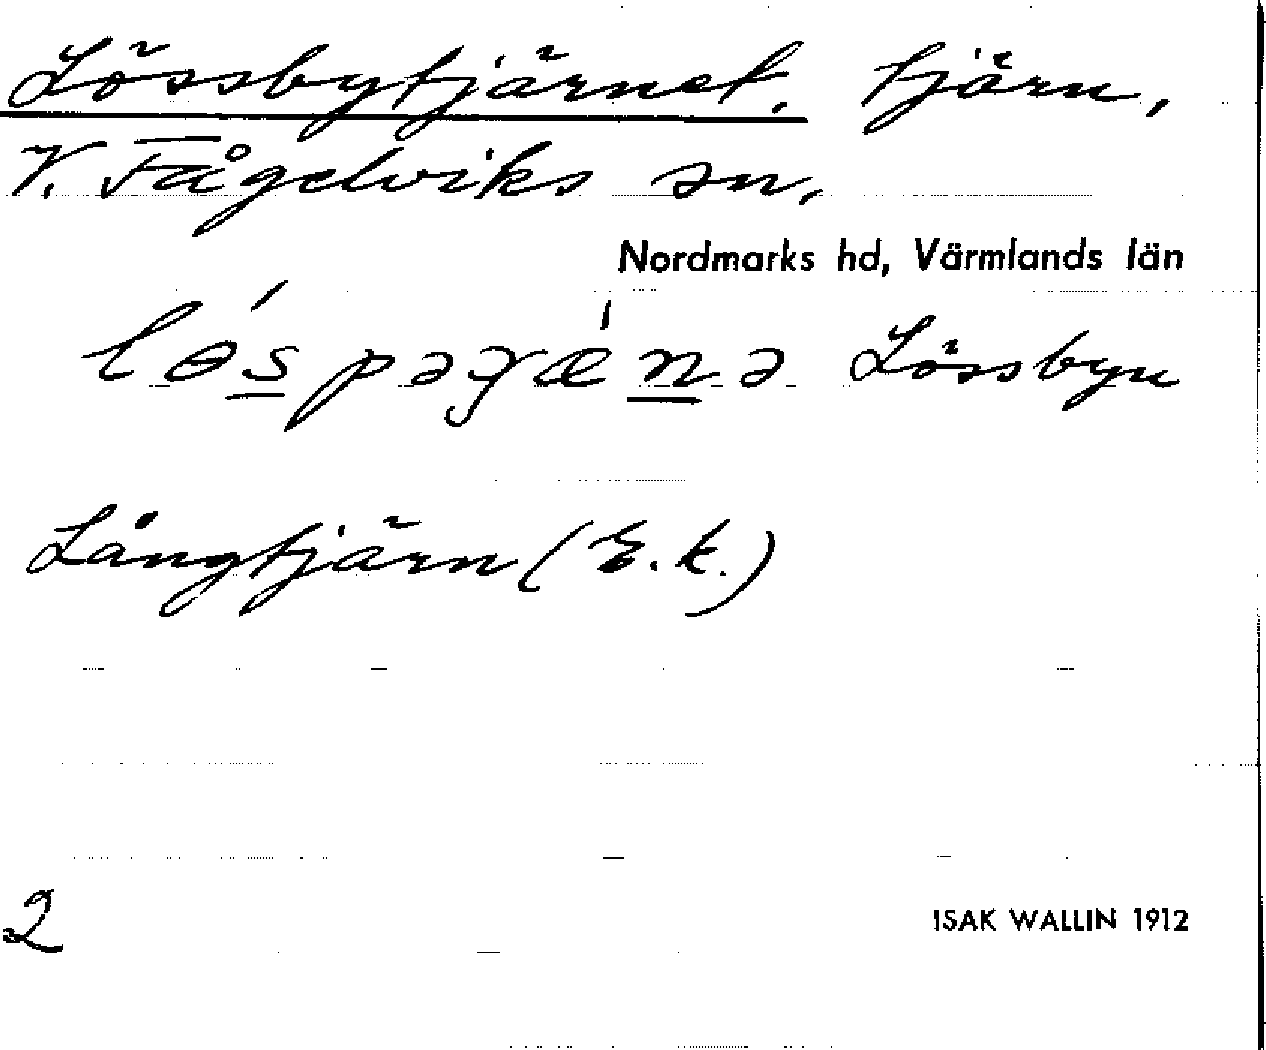 Lössbytjärnet, tjärn,
V. Fågelviks sn,
Nordmarks hd, Värmlands län
Lössbyn
Långtjärn (E.k.)
2
ISAK WALLIN 1912